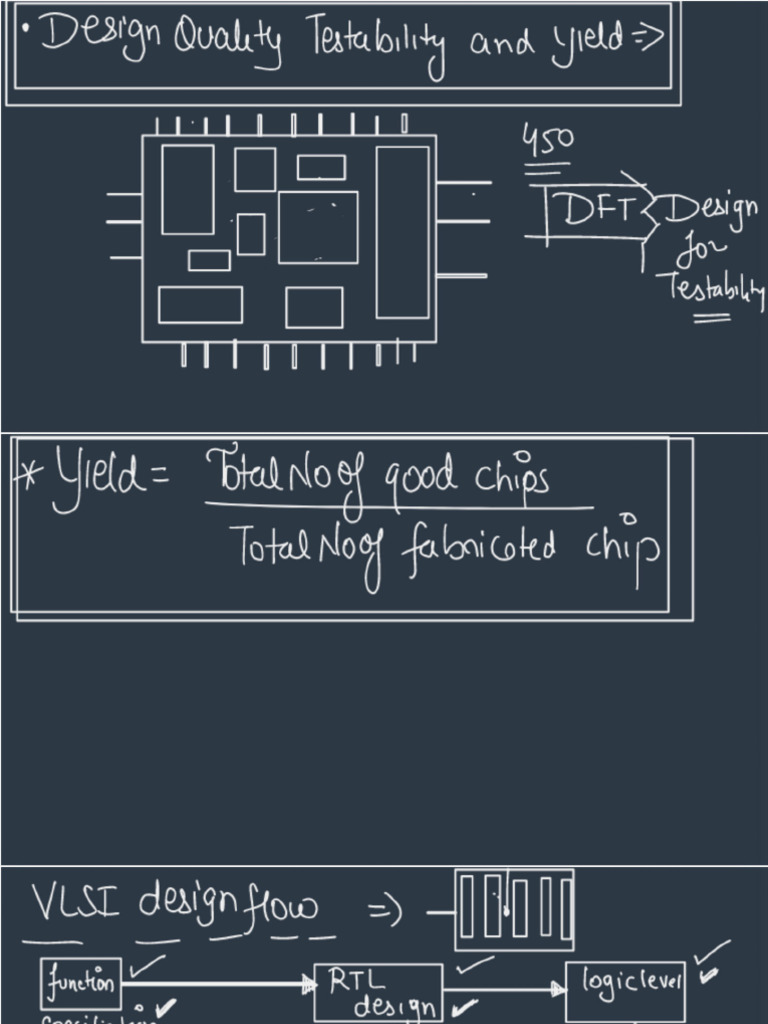 • Design Quality Testability and yield =>
450
DFT
Design
for
Testability
* Yield = Total No of good chips
Total No of fabricated chip
VLSI design flow =>
function
RTL
design
logic level